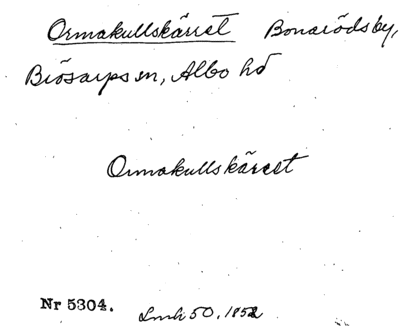 Ormakullskärret Bonarödsby,
Brösarps sn, Albo hd
Ormakullskärret
Nr 5304. Lmh 50, 1852